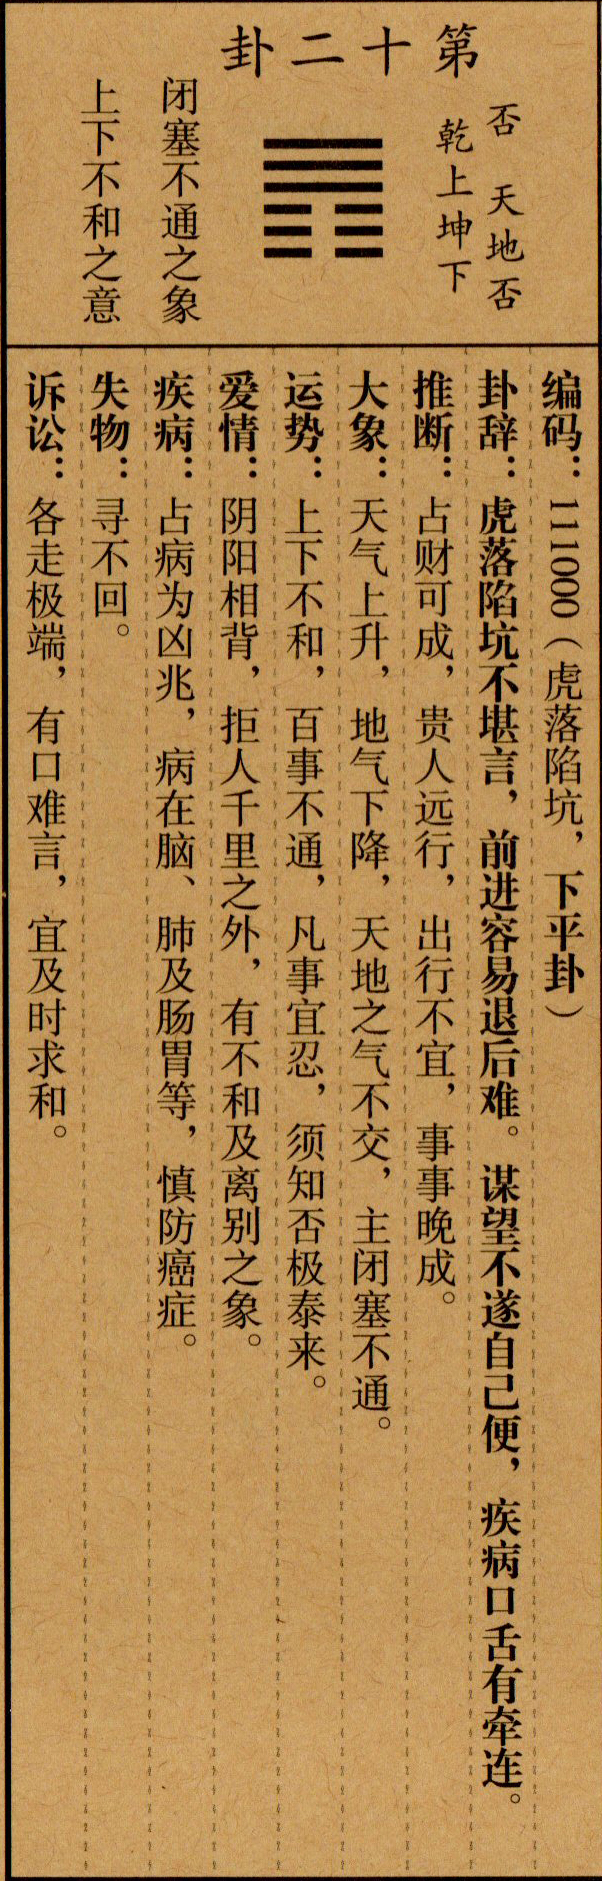 第十二卦
否 天地否
乾上坤下
闭塞不通之象
上下不和之意
编码：111000（虎落陷坑，下平卦）
卦辞：虎落陷坑不堪言，前进容易退后难。谋望不遂自己便，疾病口舌有牵连。
推断：占财可成，贵人远行，出行不宜，事事晚成。
大象：天气上升，地气下降，天地之气不交，主闭塞不通。
运势：上下不和，百事不通，凡事宜忍，须知否极泰来。
爱情：阴阳相背，拒人千里之外，有不和及离别之象。
疾病：占病为凶兆，病在脑、肺及肠胃等，慎防癌症。
失物：寻不回。
诉讼：各走极端，有口难言，宜及时求和。